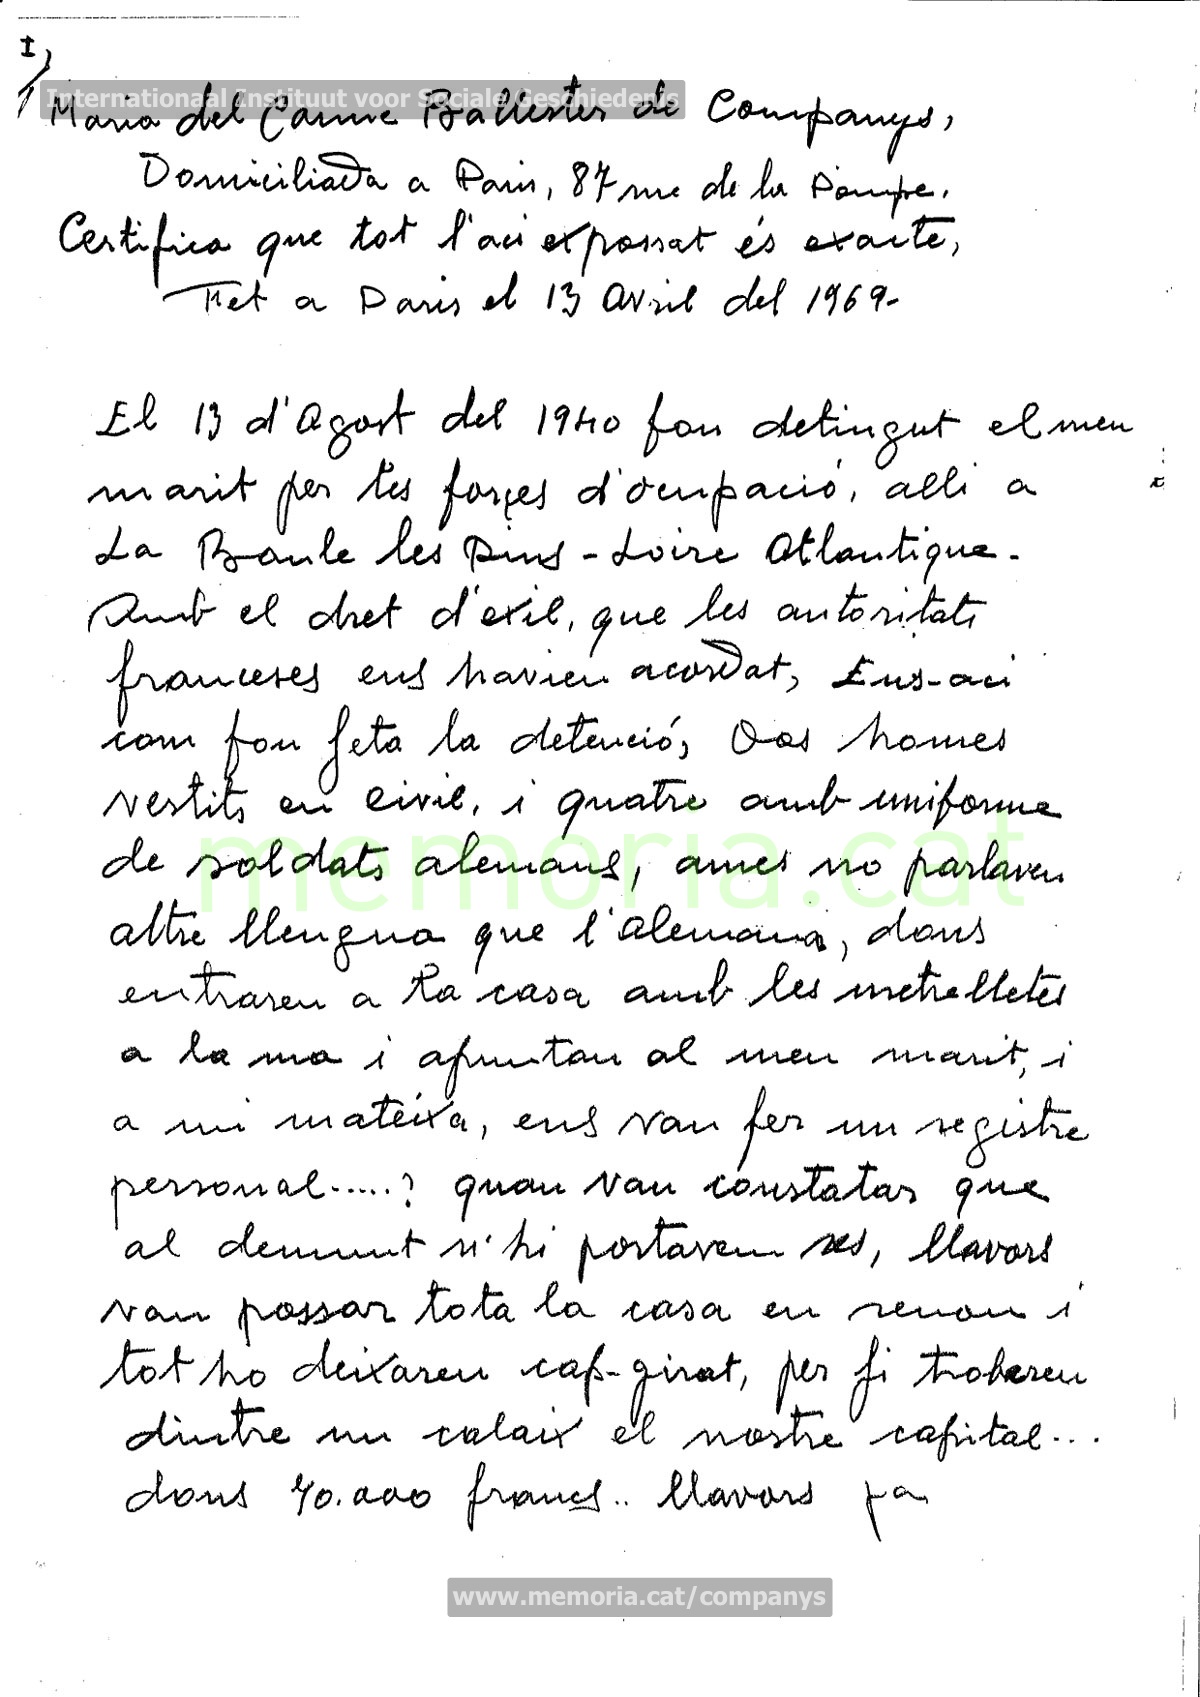 I
1
Internationaal Instituut voor Sociale Geschiedenis
Maria del Carme Ballester de Companys,
Domiciliada a Paris, 87 rue de la Pompe.
Certifica que tot l'aci expossat és exacte,
Fet a Paris el 13 Avril del 1969-
El 13 d'Agost del 1940 fou detingut el meu
marit per les forçes d'ocupació, alli a
La Baule les Pins - Loire Atlantique.
Amb el dret d'exil, que les autoritats
franceses ens havien acordat, Eus-aci
com fou feta la detenció, Dos homes
vestits en civil, i quatre amb uniforme
de soldats alemans, ames no parlaven
altre llengua que l'alemana, dons
entraren a la casa amb les metralletes
a la ma i apuntan al meu marit, i
a mi mateixa, ens van fer un registre
personal.....? quan van constatar que
al demunt n'hi portavem res, llavors
van possar tota la casa en renou i
tot ho deixaren cap-girat, per fi trobaren
dintre un calaix el nostre capital...
dons 70.000 francs.. llavors pa
memoria.cat
www.memoria.cat/companys